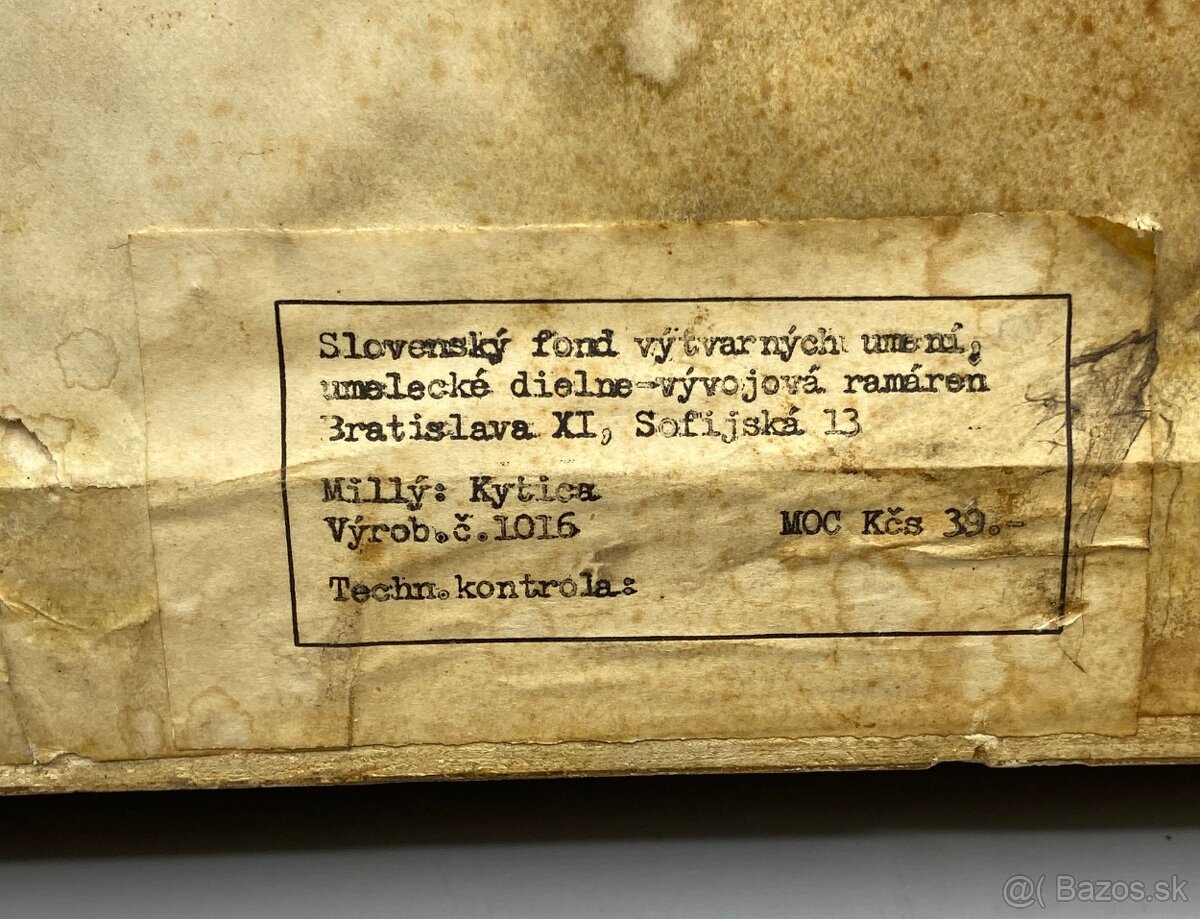 Slovenský fond výtvarných umení,
umelecké dielne-vývojová ramáreň
Bratislava XI, Sofijská 13
Millý: Kytica
Výrob.č.1016 MOC Kčs 39.-
Techn.kontrola:
@( Bazos.sk